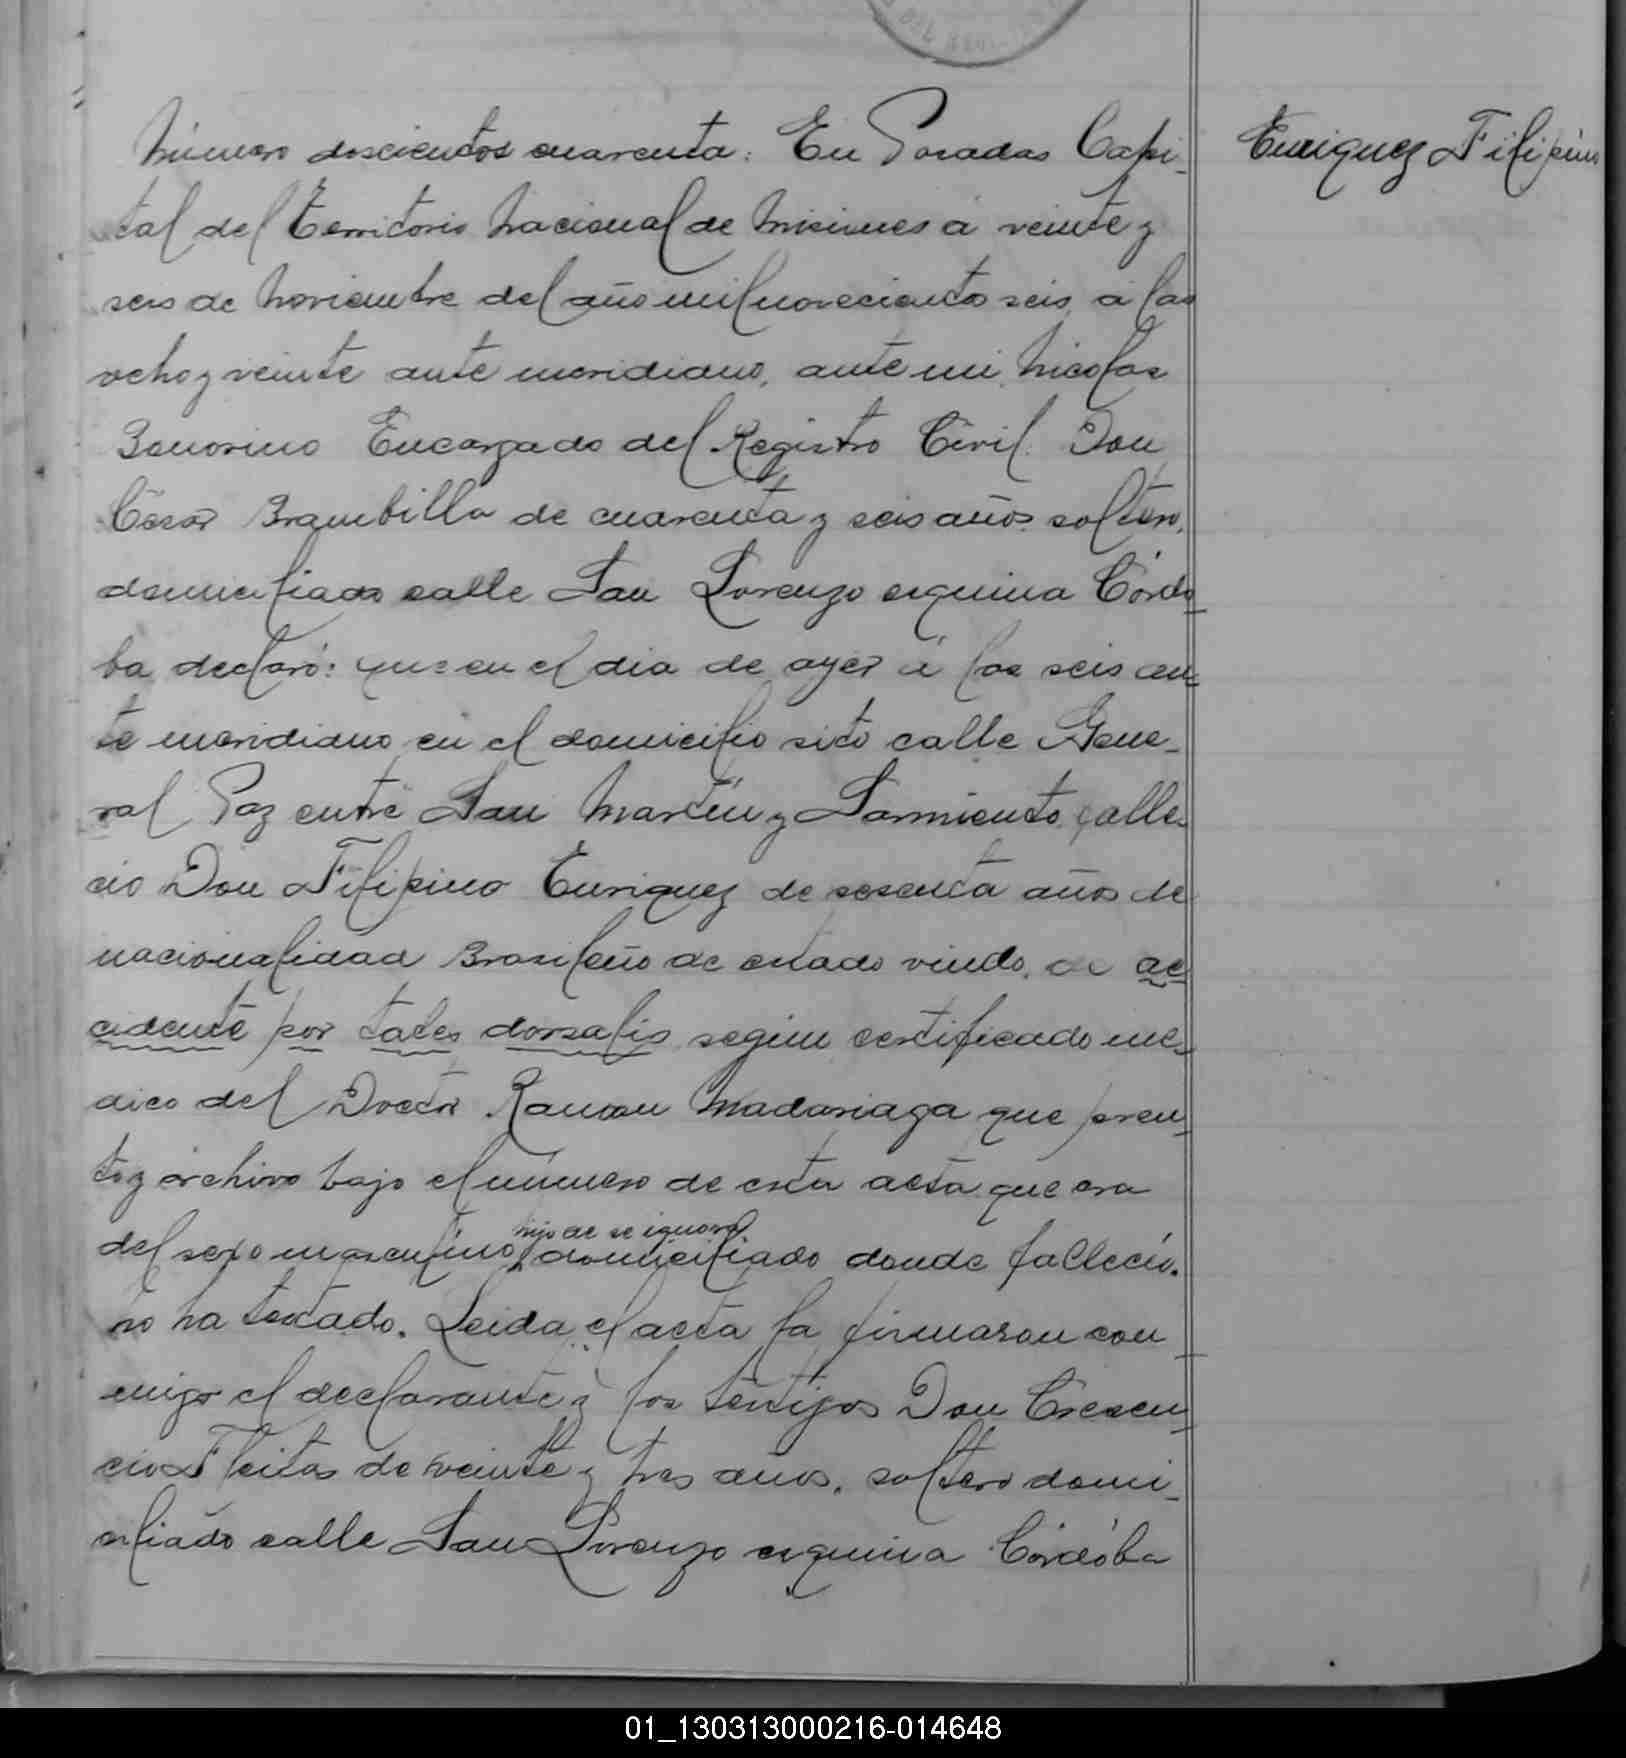 Enriquez Filipino
Número doscientos cuarenta: En Posadas Capi-
tal del Territorio Nacional de Misiones á veinte y
seis de Noviembre del año mil novecientos seis, á las
ocho y veinte ante meridiano, ante mi, Nicolas
Bonorino Encargado del Registro Civil. Don
César Brambilla de cuarenta y seis años soltero,
domiciliado calle San Lorenzo esquina Córdo-
ba declaró: que en el dia de ayer á las seis an-
te meridiano en el domicilio sito calle Gene-
ral Paz entre San Martín y Sarmiento, falle-
cio Don Filipino Enriquez de sesenta años de
nacionalidad Brasileño de estado viudo, de ac-
cidente por tabes dorsalis segun certificado me-
dico del Doctor Ramon Madariaga que presen-
to y archivo bajo el número de esta acta que era
hijo de se ignora
del sexo masculino, domiciliado donde falleció.
No ha testado. Leida el acta la firmaron con
migo el declarante y los testigos Don Crescen-
cio Fleitas de veinte y tres años, soltero domi-
ciliado calle San Lorenzo esquina Córdoba
01_130313000216-014648